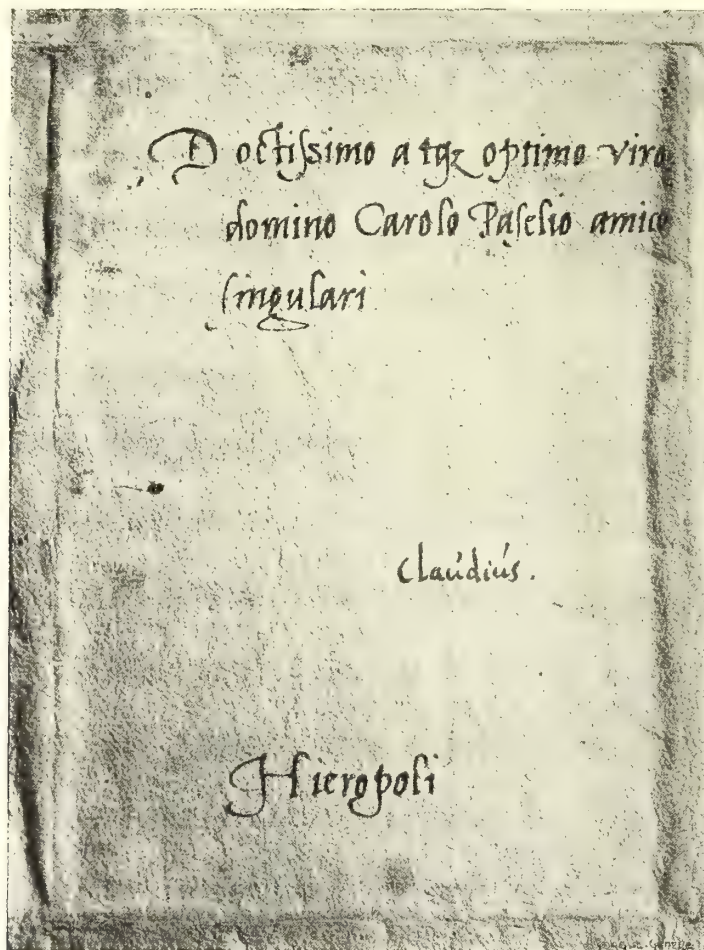 Doctissimo atqz optimo viro
domino Carolo Paselio amico
singulari
Claúdiús.
Hieropoli